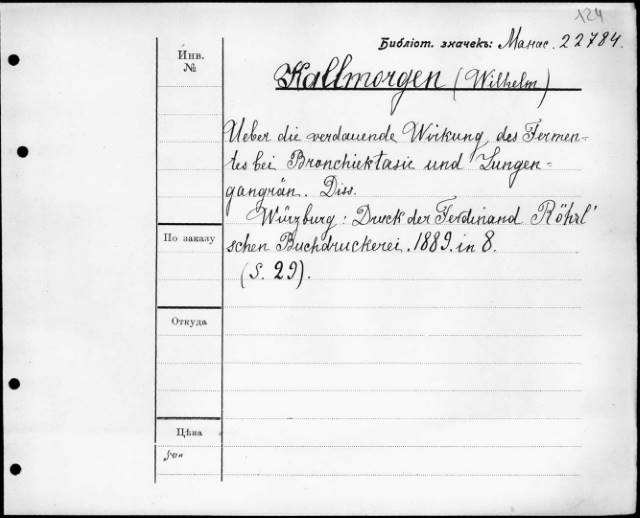 124
Библіот. значекъ: Манас. 22784.
Инв.
№
Kallmorgen (Wilhelm)
Ueber die verdauende Wirkung des Fermen-
tes bei Bronchiektasie und Lungen-
gangrän. Diss.
Würzburg: Druck der Ferdinand Röhrl'
schen Buchdruckerei. 1889. in 8.
(S. 29).
По заказу
Откуда
Цѣна